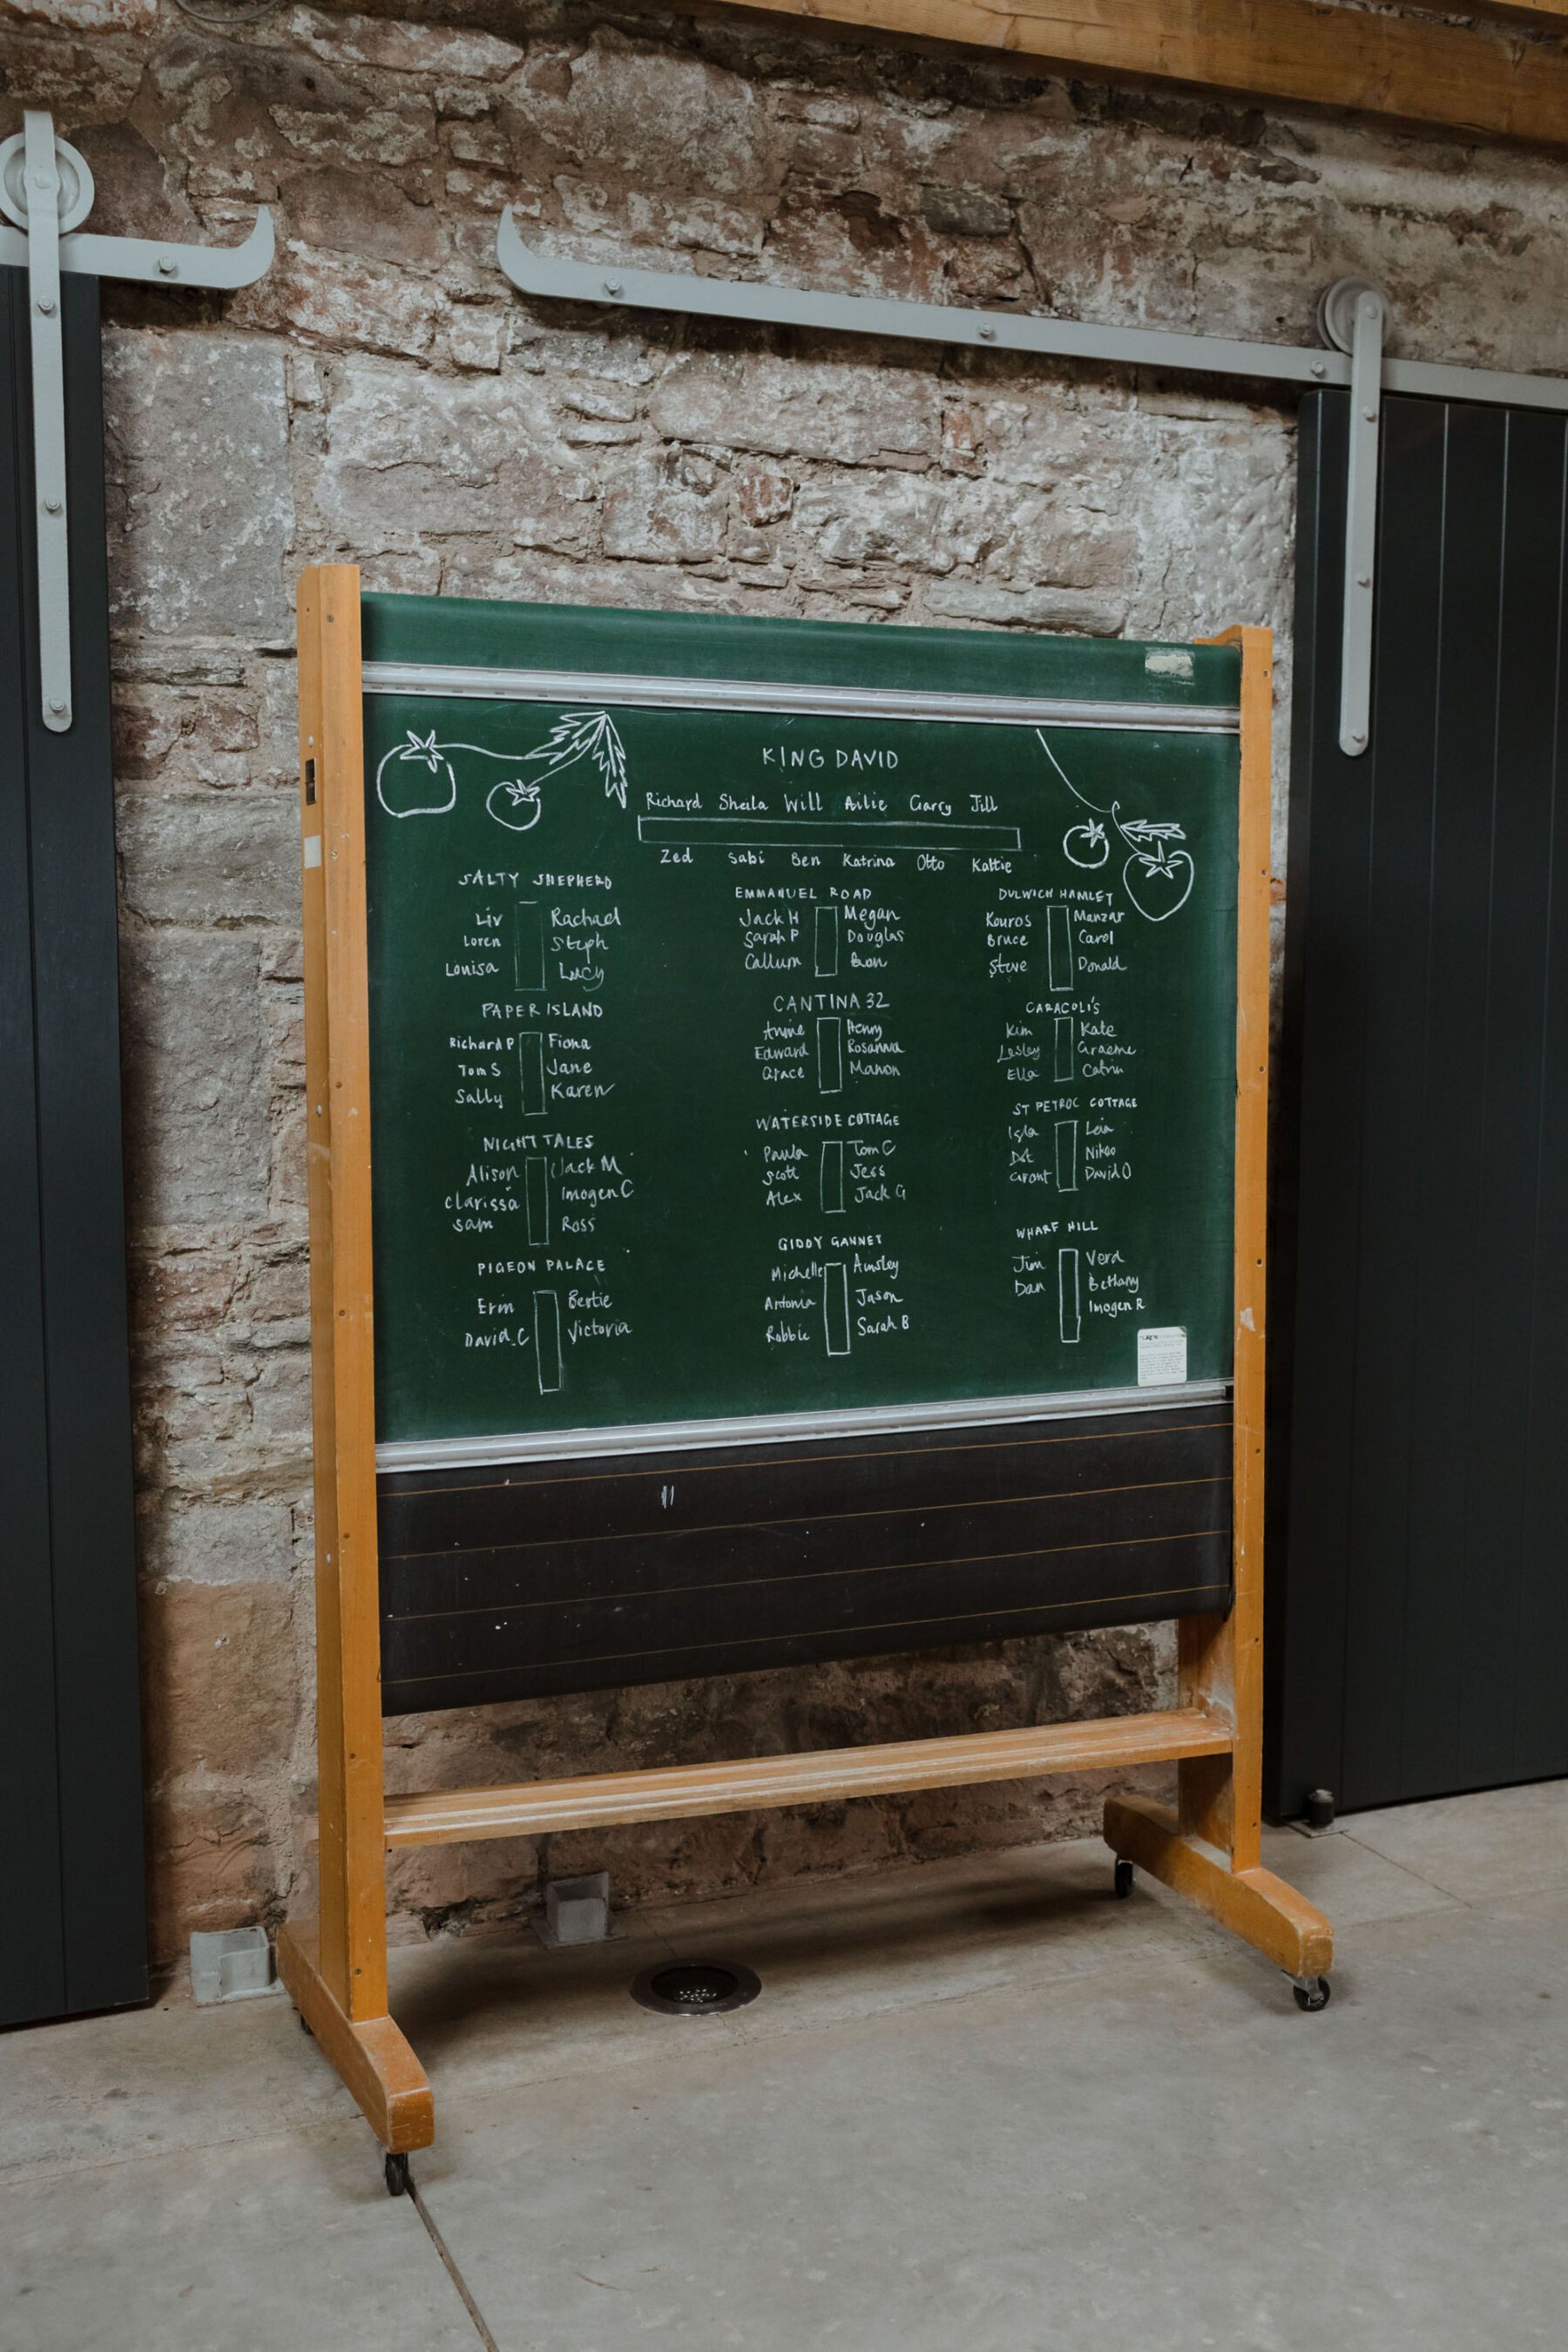 KING DAVID
Richard Sheila Will Ailie Garry Jill
Zed Sabi Ben Katrina Otto Kattie
SALTY SHEPHERD
Liv Rachael
Loren Steph
Louisa Lucy
PAPER ISLAND
Richard P Fiona
Tom S Jane
Sally Karen
NIGHT TALES
Alison Jack M
Clarissa Imogen C
Sam Ross
PIGEON PALACE
Erin Bertie
David C Victoria
EMMANUEL ROAD
Jack H Megan
Sarah P Douglas
Callum
CANTINA 32
Annie Henry
Edward Rosanna
Grace Manon
WATERSIDE COTTAGE
Paula Tom C
Scott Jess
Alex Jack G
GIDDY GANNET
Michelle Ainsley
Antonia Jason
Robbie Sarah B
DULWICH HAMLET
Kouros Manzar
Bruce Carol
Steve Donald
CARACOLI'S
Kim Kate
Lesley Graeme
Ella Catrin
ST PETROC COTTAGE
Isla Leia
Dot
Grant David O
WHARF HILL
Jim Vera
Dan Bethany
Imogen R